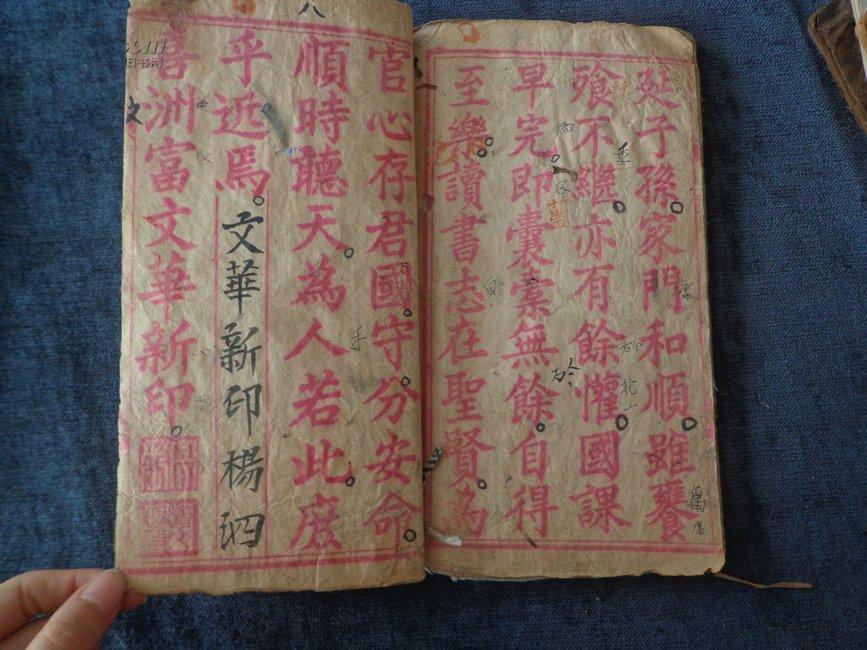 延子孫家門和順雖饔
飧不繼亦有餘懽國課
早完即囊橐無餘自得
至樂讀書志在聖賢為
官心存君國守分安命
順時聽天為人若此庶
乎近焉文華新印楊泗
喜洲富文華新印
八